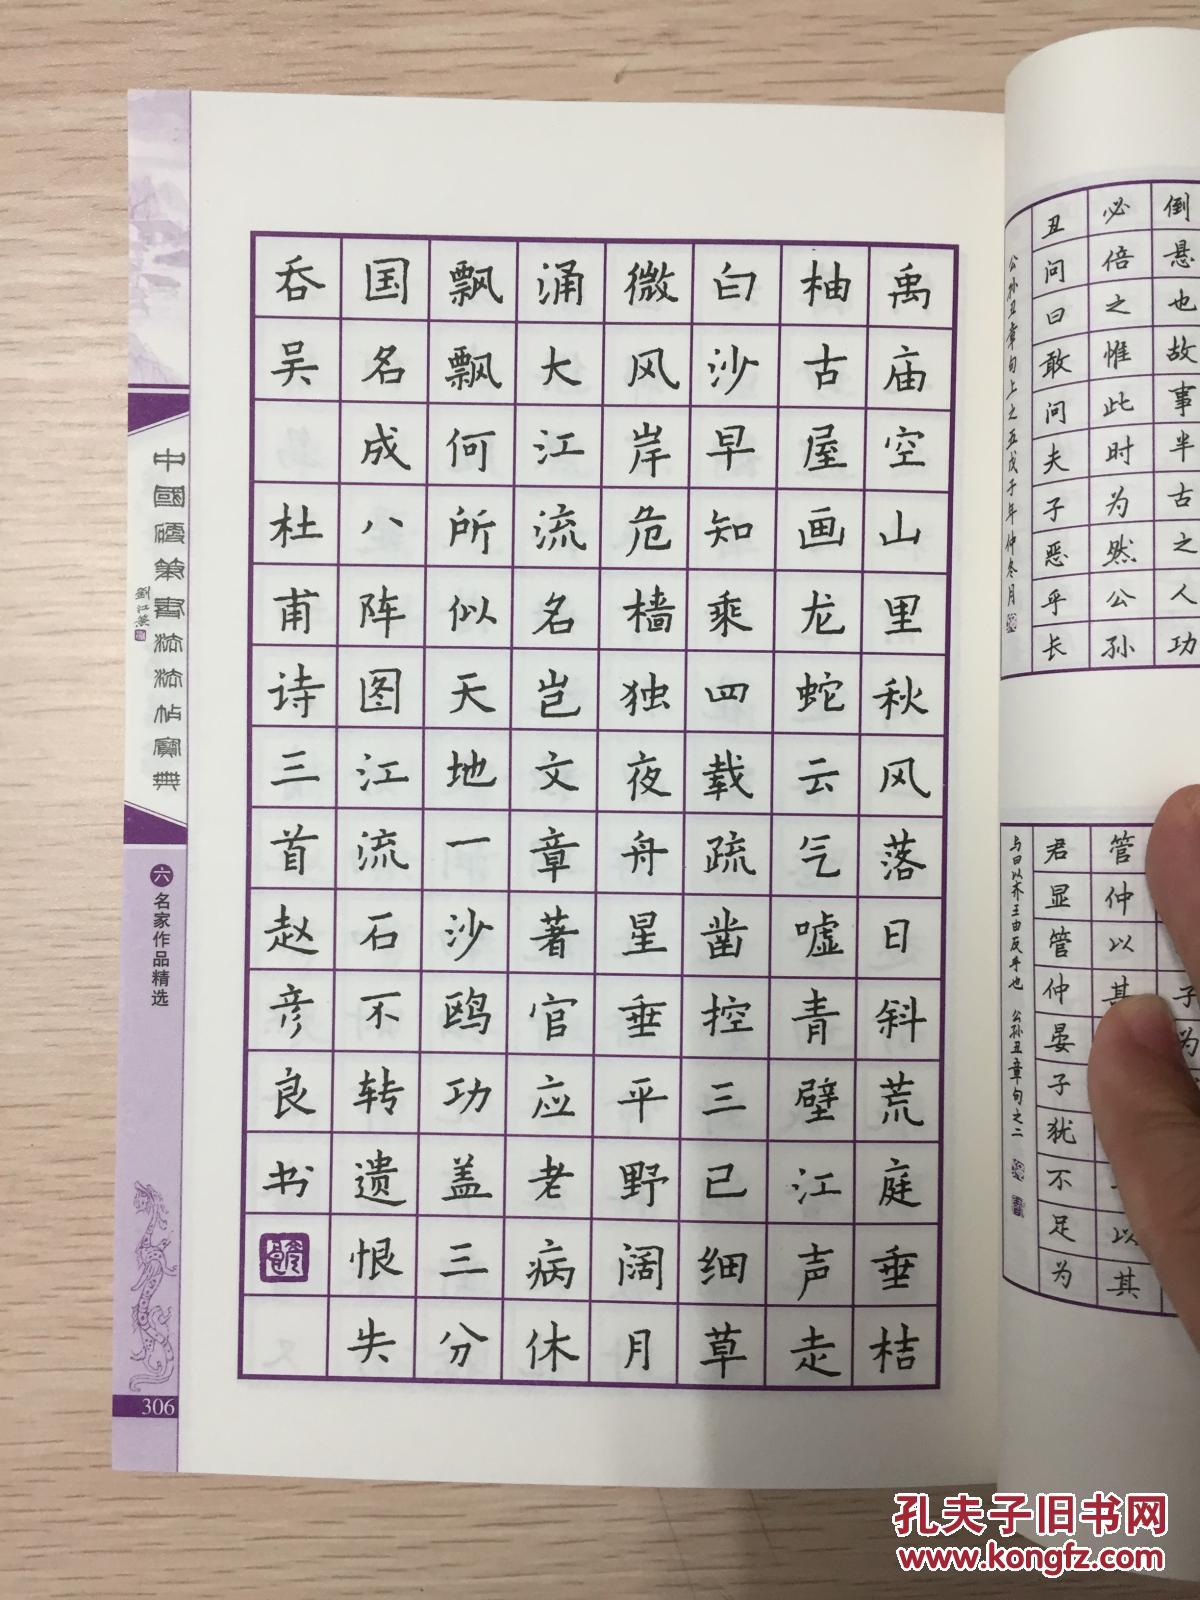 倒悬也故事半古之人功
必倍之惟此时为然公孙
丑问曰敢问夫子恶乎长
公孙丑章句上之五戊子年仲冬月
子为
管仲以其以其
君显管仲晏子犹不足为
与曰以齐王由反手也 公孙丑章句之二
禹庙空山里秋风落日斜荒庭垂桔
柚古屋画龙蛇云气嘘青壁江声走
白沙早知乘四载疏凿控三已细草
微风岸危樯独夜舟星垂平野阔月
涌大江流名岂文章著官应老病休
飘飘何所似天地一沙鸥功盖三分
国名成八阵图江流石不转遗恨失
吞吴 杜甫诗三首赵彦良书
中國硬筆書法法帖寶典
六 名家作品精选
306
孔夫子旧书网
www.kongfz.com